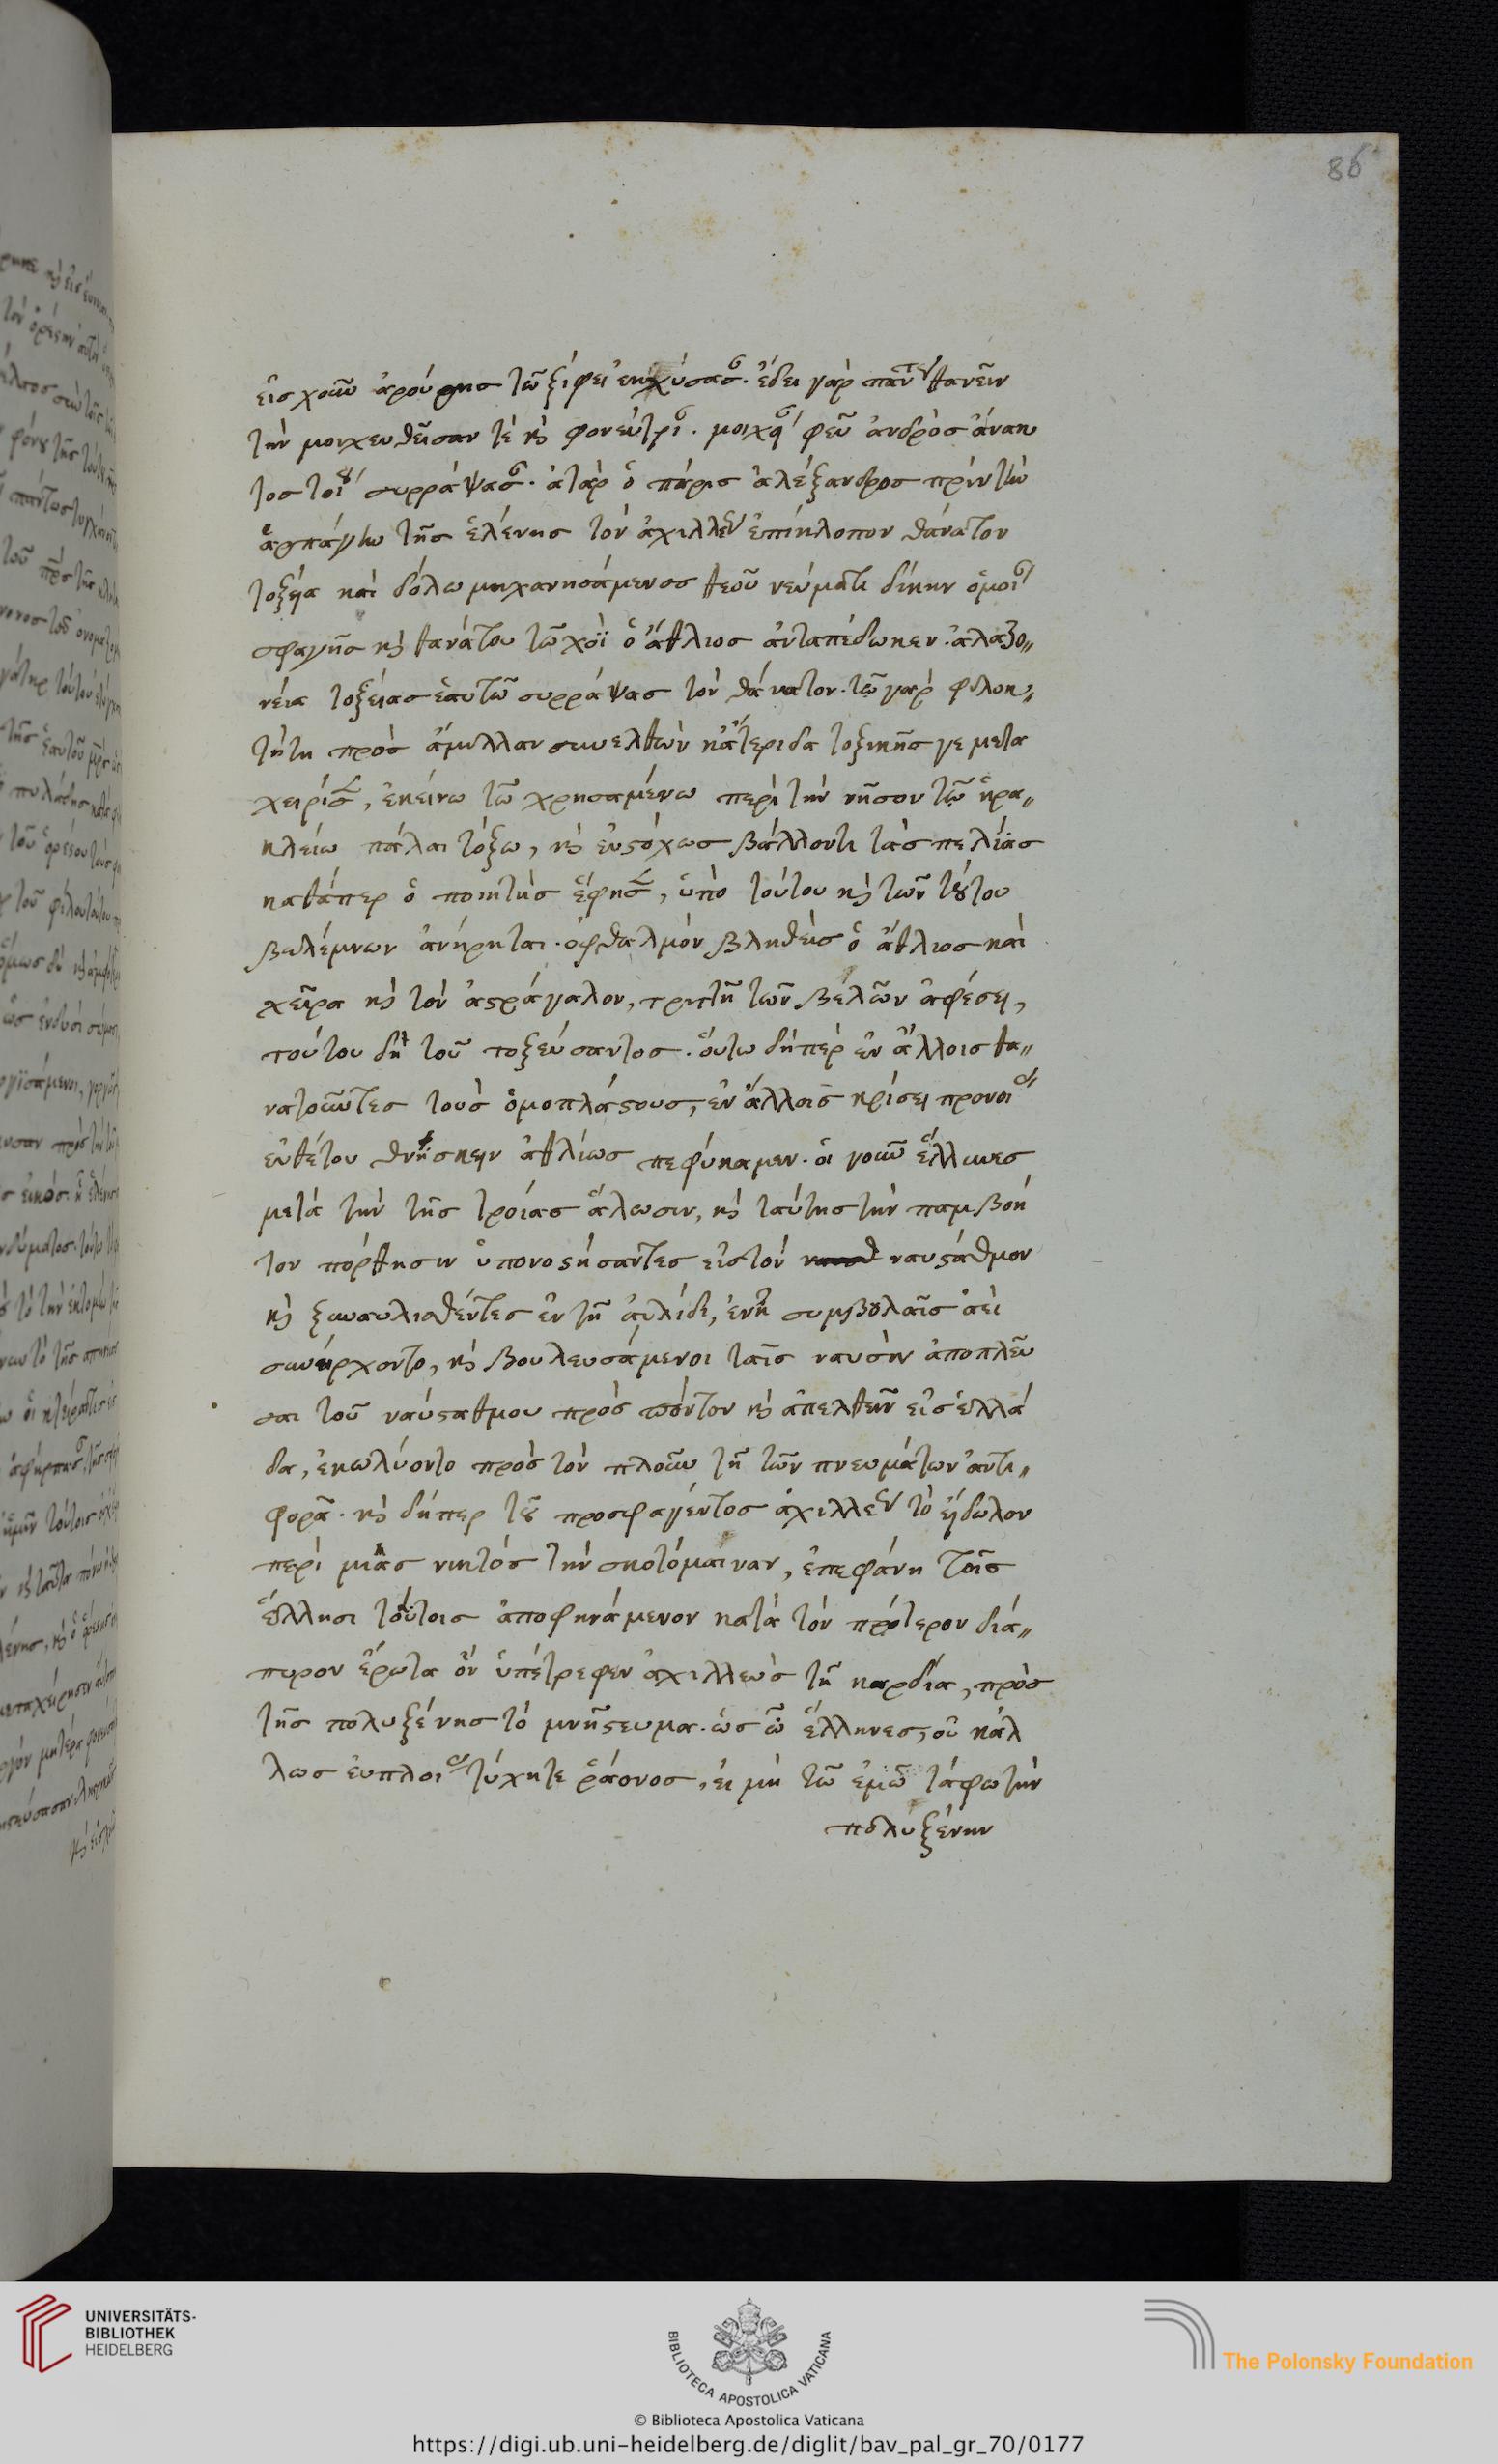 86
εἰς χοῦν ἀρούρης τῶ ξίφει ἐκχύσας. ἔδει γὰρ πάντως θανεῖν
τὴν μοιχευθεῖσαν τὲ καὶ φονεύτριαν. φεῦ ἀνδρὸς ἄνακ
τος συρράψασαν. ἀτὰρ ὁ πάρις ἀλέξανδρος πρὶν τὴν
ἁρπαγὴν τῆς ἑλένης τὸν ἀχιλλέως ἐπίκλοπον θάνατον
τοξεία καὶ δόλω μηχανησάμενος θεοῦ νεύματι δίκην ὁμοίως
σφαγῆς καὶ θανάτου τῶ χοῒ ὁ ἄθλιος ἀνταπέδωκεν. ἀλαζο„
νεία τοξείας ἑαυτῶ συρράψας τὸν θάνατον. τῶ γὰρ φιλοκ„
τήτη πρὸς ἅμιλλαν συνελθὼν τοξικῆς γε μετα
χειρίσεως, ἐκείνω τῶ χρησαμένω περὶ τὴν νῆσον τῶ ἡρα„
κλείω πάλαι τόξω, καὶ εὐστόχως βάλλοντι τὰς πελίας
καθάπερ ὁ ποιητὴς ἔφησεν, ὑπὸ τούτου καὶ τῶν τούτου
βελέμνων ἀνήρηται. ὀφθαλμὸν βληθεὶς ὁ ἄθλιος καὶ
χεῖρα καὶ τὸν ἀστράγαλον, τριττῆ τῶν βελῶν ἀφέσει,
τούτου δὴ τοῦ τοξεύσαντος. οὕτω δήπερ ἐν ἄλλοις θα„
νατοῦντες τοὺς ὁμοπλάστους, ἐν ἄλλοις κρίσει προνοίας
εὐθέτου θνήσκειν ἀθλίως πεφύκαμεν. οἱ γοῦν ἕλληνες
μετὰ τὴν τῆς τροίας ἅλωσιν, καὶ ταύτης τὴν παμβόη
τον πόρθησιν ὑπονοστήσαντες εἰς τὸν ναύσταθμον
καὶ ξυναυλισθέντες ἐν τῆ αὐλίδι, ἐν ἧ συμβολαῖς ἀεὶ
συνήρχοντο, καὶ βουλευσάμενοι ταῖς ναυσὶν ἀποπλεῦ
σαι τοῦ ναύσταθμου πρὸς πόντον καὶ ἀπελθεῖν εἰς ἑλλά
δα, ἐκωλύοντο πρὸς τὸν πλοῦν τῆ τῶν πνευμάτων ἀντι„
φορᾶ. καὶ δήπερ τοῦ προσφαγέντος ἀχιλλέως τὸ εἴδωλον
περὶ μιᾶς νυκτὸς τὴν σκοτόμαιναν, ἐπεφάνη τοῖς
ἕλλησι τούτοις ἀποφηνάμενον κατὰ τὸν πρότερον διά„
πυρον ἔρωτα ὃν ὑπέτρεφεν ἀχιλλεὺς τῆ καρδία, πρὸς
τῆς πολυξένης τὸ μνήστευμα. ὡς ὦ ἕλληνες, οὐ κάλ
λως εὐπλοίας τύχητε ῥάονος, εἰ μὴ τῶ ἐμῶ τάφω τὴν
πολυξένην
UNIVERSITÄTS-
BIBLIOTHEK
HEIDELBERG
BIBLIOTECA APOSTOLICA VATICANA
The Polonsky Foundation
© Biblioteca Apostolica Vaticana
https://digi.ub.uni-heidelberg.de/diglit/bav_pal_gr_70/0177